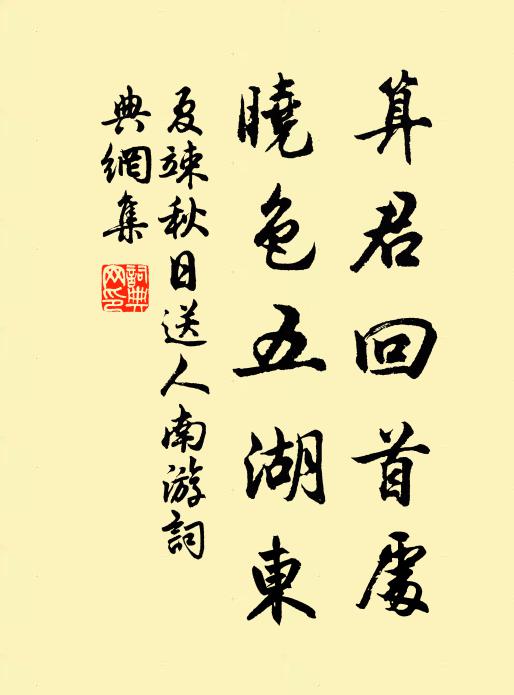 算君回首處
曉色五湖東
夏竦秋日送人南游詞
典網集
詞典网印